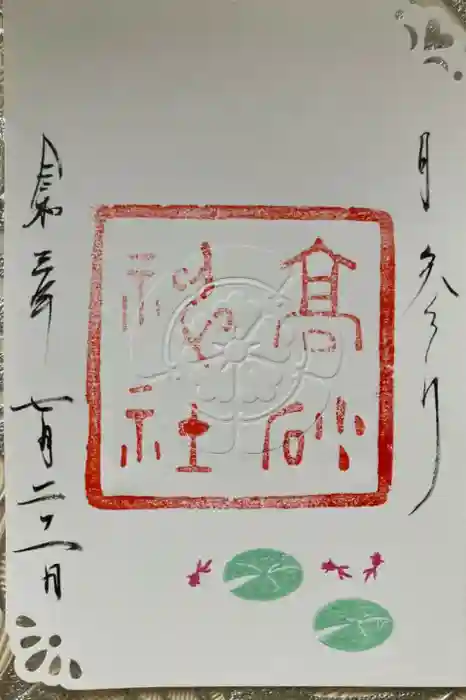 月参り
高砂
神社
令和三年 七月二十一日